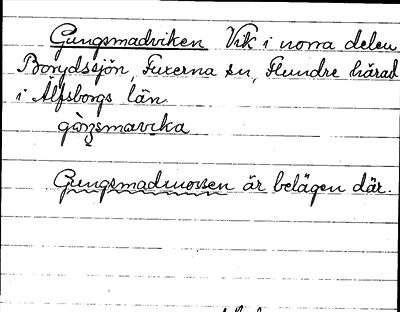 Gungsmadviken Vik i norra delen
Borydssjön, Fuxerna sn, Flundre härad
i Älfsborgs län.
gòŋsmavika
Gungsmadmossen är belägen där.